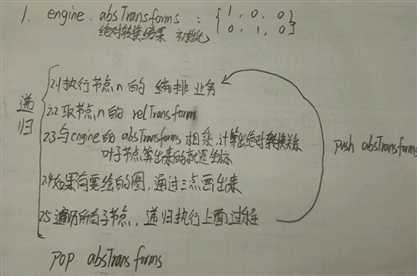 1. engine.absTransforms : [1, 0, 0]
[0, 1, 0]
绝对转换结果 初始化
递归
2.1 执行节点n的 编排业务
2.2 取节点n的 relTransform
2.3 与engine的absTransforms 相乘,计算出绝对转换关系
叶子节点算出来的就是坐标
2.4 如果有要绘的图,通过三点画出来
2.5 遍历所有子节点,递归执行上面过程
push absTransforms
pop absTransforms